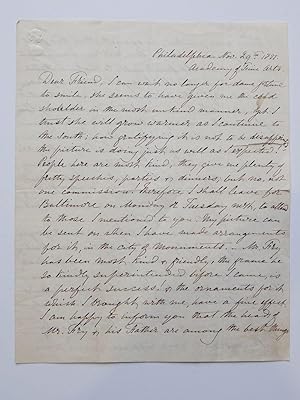 Philadelphia Nov. 29th 1851.
Academy of Fine Arts
Dear Friend, I can wait no longer for dame fortune
to smile, she seems to have given me the cold
shoulder in the most unkind manner, yet I
trust she will grow warmer as I continue to
the South; how gratifying it is not to be disappointed
the picture is doing just as well as I expected!
People here are most kind, they give me plenty of
pretty speeches, parties & dinners, but no, not
one commission, therefore I shall leave for
Baltimore on Monday or Tuesday next, to attend
to those I mentioned to you. My picture can
be sent on when I have made arrangements
for it, in the City of Monuments. Mr. Fry
has been most kind & friendly, the frame he
so kindly superintended before I came, is
a perfect success, & the ornaments for it
which I brought with me, have a fine effect
I am happy to inform you that the heads of
Mr. Fry & his Father are among the best things